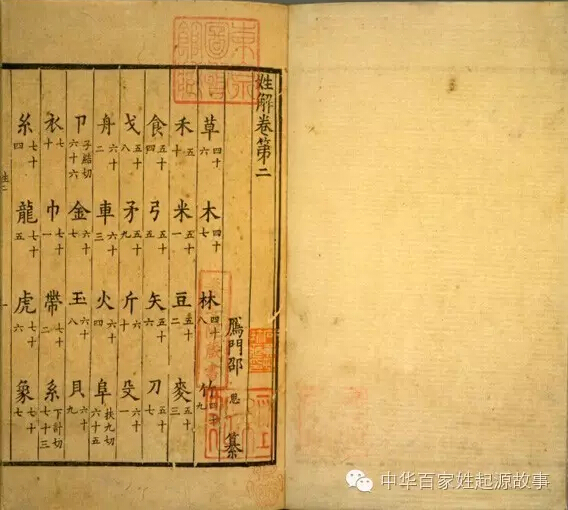 東京圖書館藏
姓解卷第二
鴈門邵 思 纂
草四十六 木四十七 林四十八 竹四十九
禾五十 米五十一 豆五十二 麥五十三
食五十四 弓五十五 矢五十六 刀五十七
戈五十八 矛五十九 斤六十 殳六十一
舟六十二 車六十三 火六十四 阜扶九切六十五
卩子結切六十六 金六十七 玉六十八 貝六十九
衣七十 巾七十一 帶七十二 系下計切七十三
糸七十四 龍七十五 虎七十六 象七十七
中华百家姓起源故事